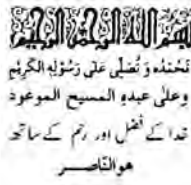 بسم الله الرحمن الرحيم
نَحْمَدُه وَ نُصَلِّى عَلٰى رَسُوْلِهِ الْكَرِيْمِ
وعلى عبده المسيح الموعود
خدا کے فضل اور رحم کے ساتھ
هو النّاصر